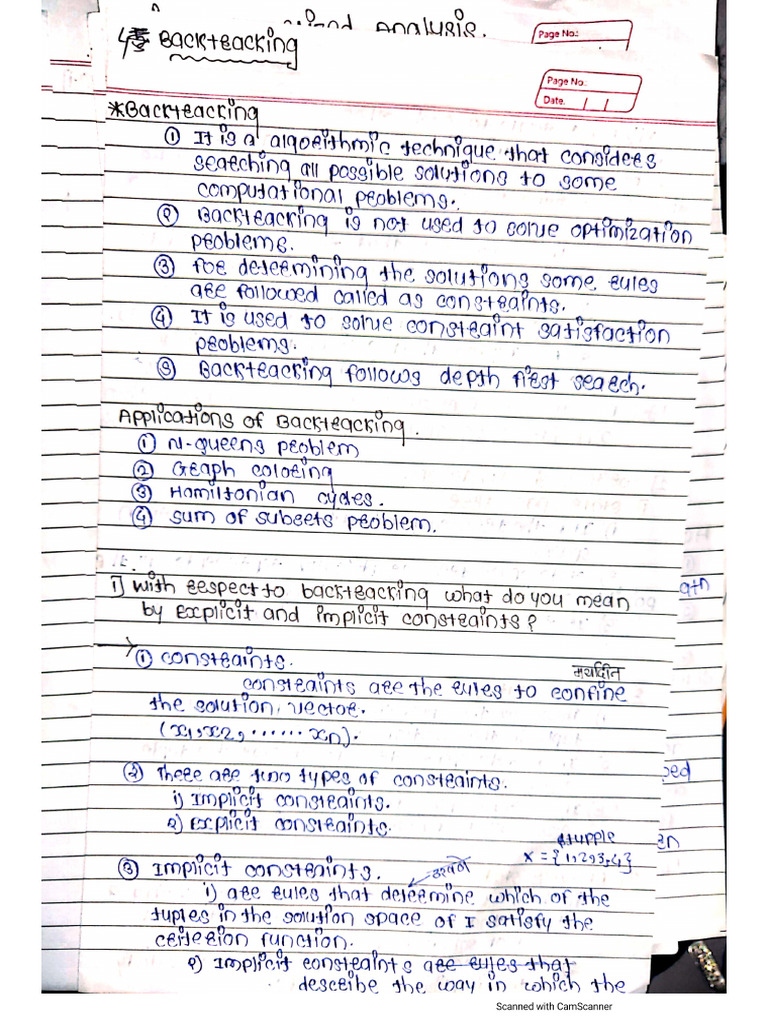 Analysis.
Page No.:
4 Backtracking
Page No.
Date. / /
*Backtracking
① It is a algorithmic technique that considers
searching all possible solutions to some
computational problems.
② Backtracking is not used to solve optimization
problems.
③ for determining the solutions some rules
are followed called as constraints.
④ It is used to solve constraint satisfaction
problems.
⑤ Backtracking follows depth first search.
Applications of Backtracking.
① N-queens problem
② Graph coloring
③ Hamiltonian cycles.
④ sum of subsets problem.
1) with respect to backtracking what do you mean
by explicit and implicit constraints?
→ ① constraints.
मर्यादित
constraints are the rules to confine
the solution vector.
(x1, x2, ...... xn).
② There are two types of constraints.
i) Implicit constraints.
2) Explicit constraints.
tupple
x = {1,2,3,4}
③ Implicit constraints.
i) are rules that determine which of the
tuples in the solution space of I satisfy the
criterion function.
2) Implicit constraints are rules that
describe the way in which the
Scanned with CamScanner